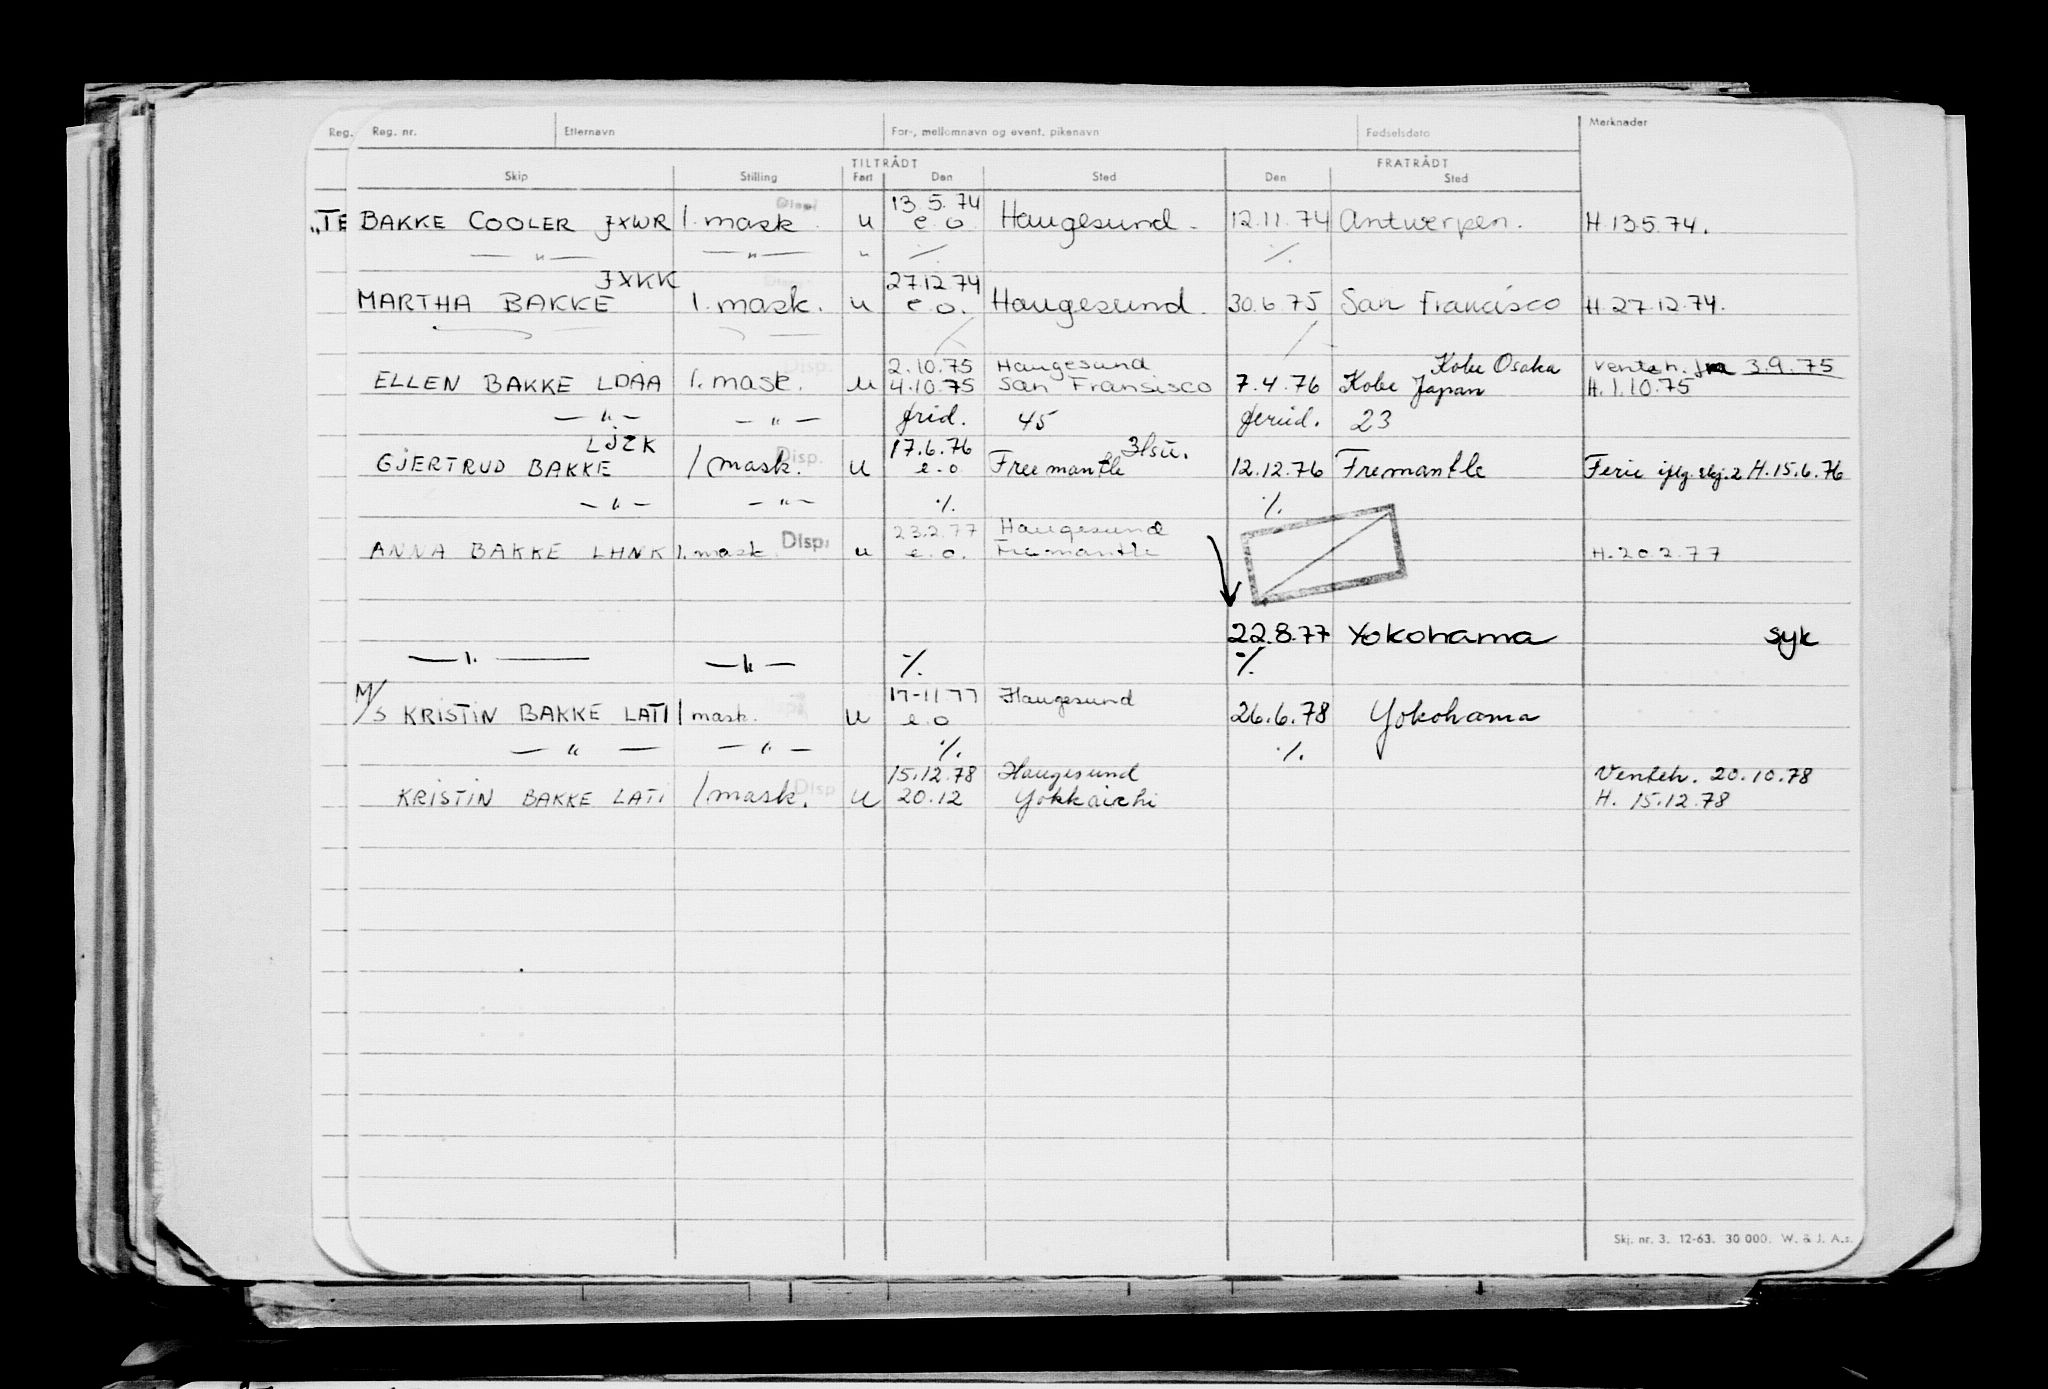 Reg. Reg. nr. Etternavn For-, mellomnavn og event. pikenavn Fødselsdato Merknader
TILTRÅDT FRATRÅDT
Skip Stilling Fart Den Sted Den Sted
Disp. 13.5.74
"TE BAKKE COOLER JXWR 1. mask. u e.o. Haugesund. 12.11.74 Antwerpen. H.13.5.74.
— " — — " — " ·/. ·/.
JXKK 27.12.74
MARTHA BAKKE 1. mask. u e.o. Haugesund. 30.6.75 San Francisco H.27.12.74.
Disp. 2.10.75 Haugesund Kobe Osaka Venteh. 3.9.75
ELLEN BAKKE LDAA 1. mask. u 4.10.75 San Fransisco 7.4.76 Kobe Japan H.1.10.75
— " — — " — frid. 45 23
LJZK Disp. 17.6.76
GJERTRUD BAKKE 1 mask. u e.o. Freemantle 12.12.76 Fremantle Ferie H.15.6.76
— " — — " — ·/. ·/.
23.2.77 Haugesund
ANNA BAKKE LHNK 1. mask. Disp. u e.o. Fremantle H.20.2.77
22.8.77 Yokohama syk
— " — — " — ·/. ·/.
17-11 77 Haugesund
M/S KRISTIN BAKKE LATI 1 mask. u e.o 26.6.78 Yokohama
— " — — " — ·/. ·/.
15.12.78 Haugesund Venteh. 20.10.78
KRISTIN BAKKE LATI 1 mask. Disp u 20.12 Yokkaichi H. 15.12.78
Skj. nr. 3. 12-63. 30 000. W. & J. A.s.